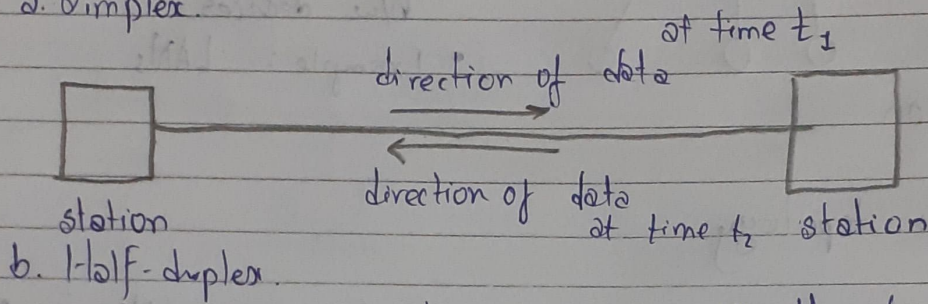 a. Simplex.
at time t1
direction of data
direction of data
at time t2
station
station
b. Half-duplex.